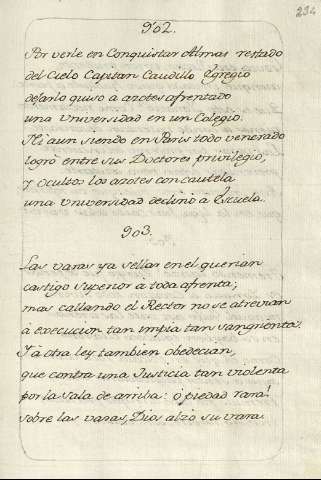 234
902.
Por verle en Conquistar Almas restado
del Cielo Capitan Caudillo Egregio
dejarlo quiso à azotes afrentado
una Universidad en un Colegio.
Ni aun siendo en Paris todo venerado
logró entre sus Doctores privilegio,
y ocultos los azotes con cautela
una Universidad declinó a Escuela.
903.
Las varas ya sellar en el querian
castigo superior à toda afrenta;
mas callando el Rector no se atrevian
à execucion tan impia tan sangrienta.
Y à otra ley tambien obedecian,
que contra una Justicia tan violenta
por la Sala de arriba: ò piedad rara!
sobre las varas, Dios alzò su vara.